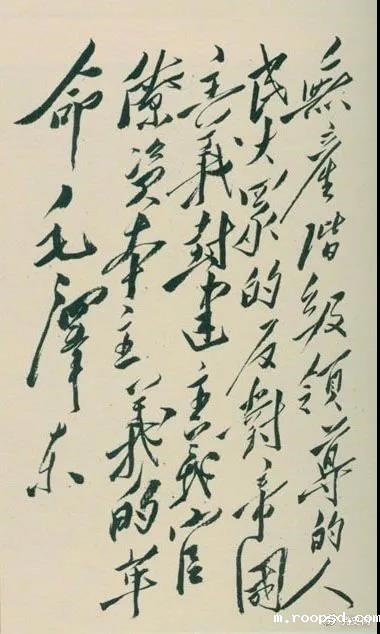 無產階級領導的人
民大眾的反對帝國
主義封建主義官
僚資本主義的革
命 毛澤东
m.roopsd.com